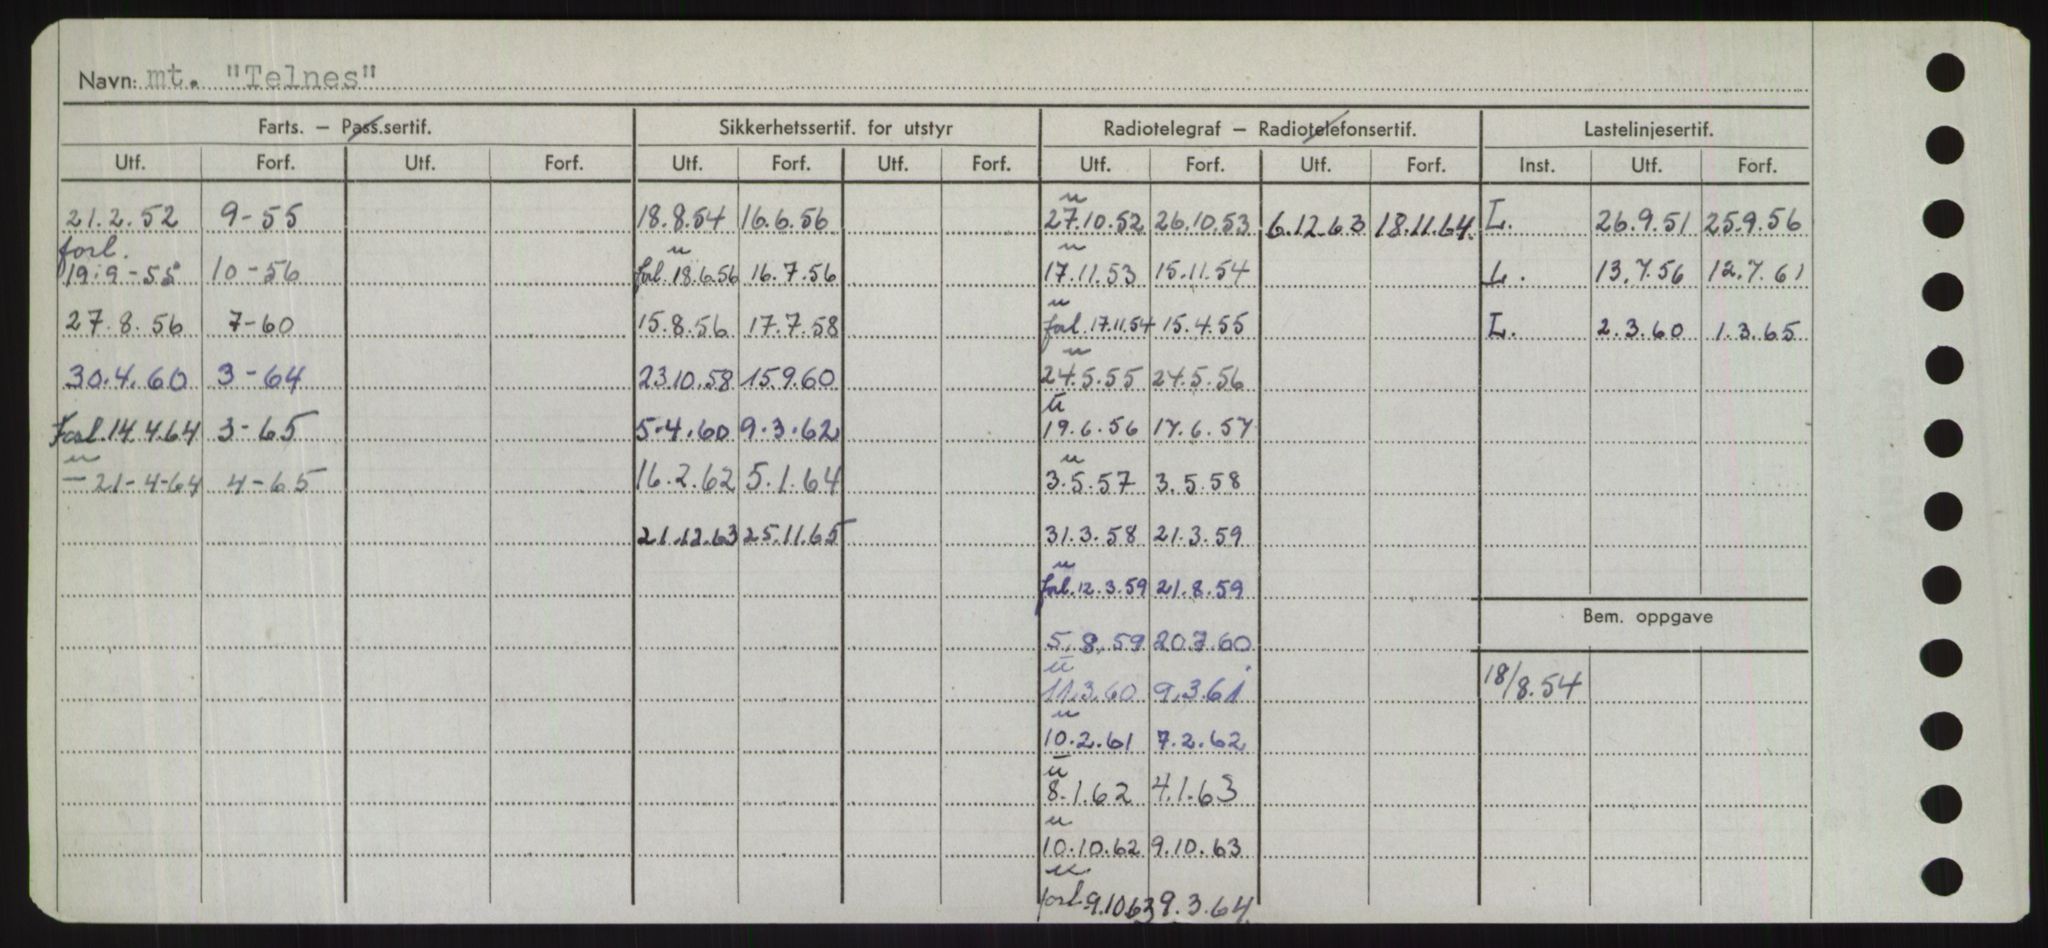 Navn: mt. "Telnes"
Farts. – Pass.sertif. Sikkerhetssertif. for utstyr Radiotelegraf – Radiotelefonsertif. Lastelinjesertif.
Utf. Forf. Utf. Forf. Utf. Forf. Utf. Forf. Utf. Forf. Utf. Forf. Inst. Utf. Forf.
u
21.2.52 9-55 18.8.54 16.6.56 27.10.52 26.10.53 6.12.63 18.11.64. L. 26.9.51 25.9.56
forl. u u
19.9-55 10-56 forl. 18.6.56 16.7.56 17.11.53 15.11.54 L. 13.7.56 12.7.61
u
27.8.56 7-60 15.8.56 17.7.58 forl. 17.11.54 15.4.55 L. 2.3.60 1.3.65
u
30.4.60 3-64 23.10.58 15.9.60 24.5.55 24.5.56
u
Forl. 14.4.64 3-65 5.4.60 9.3.62 19.6.56 17.6.57
u u
— 21-4-64 4-65 16.2.62 5.1.64 3.5.57 3.5.58
21.12.63 25.11.65 31.3.58 21.3.59
u
forl. 12.3.59 21.8.59
Bem. oppgave
5.8.59 20.7.60
u
11.3.60 9.3.61 18/8.54
u
10.2.61 7.2.62
u
8.1.62 4.1.63
u
10.10.62 9.10.63
u
forl. 9.10.63 9.3.64